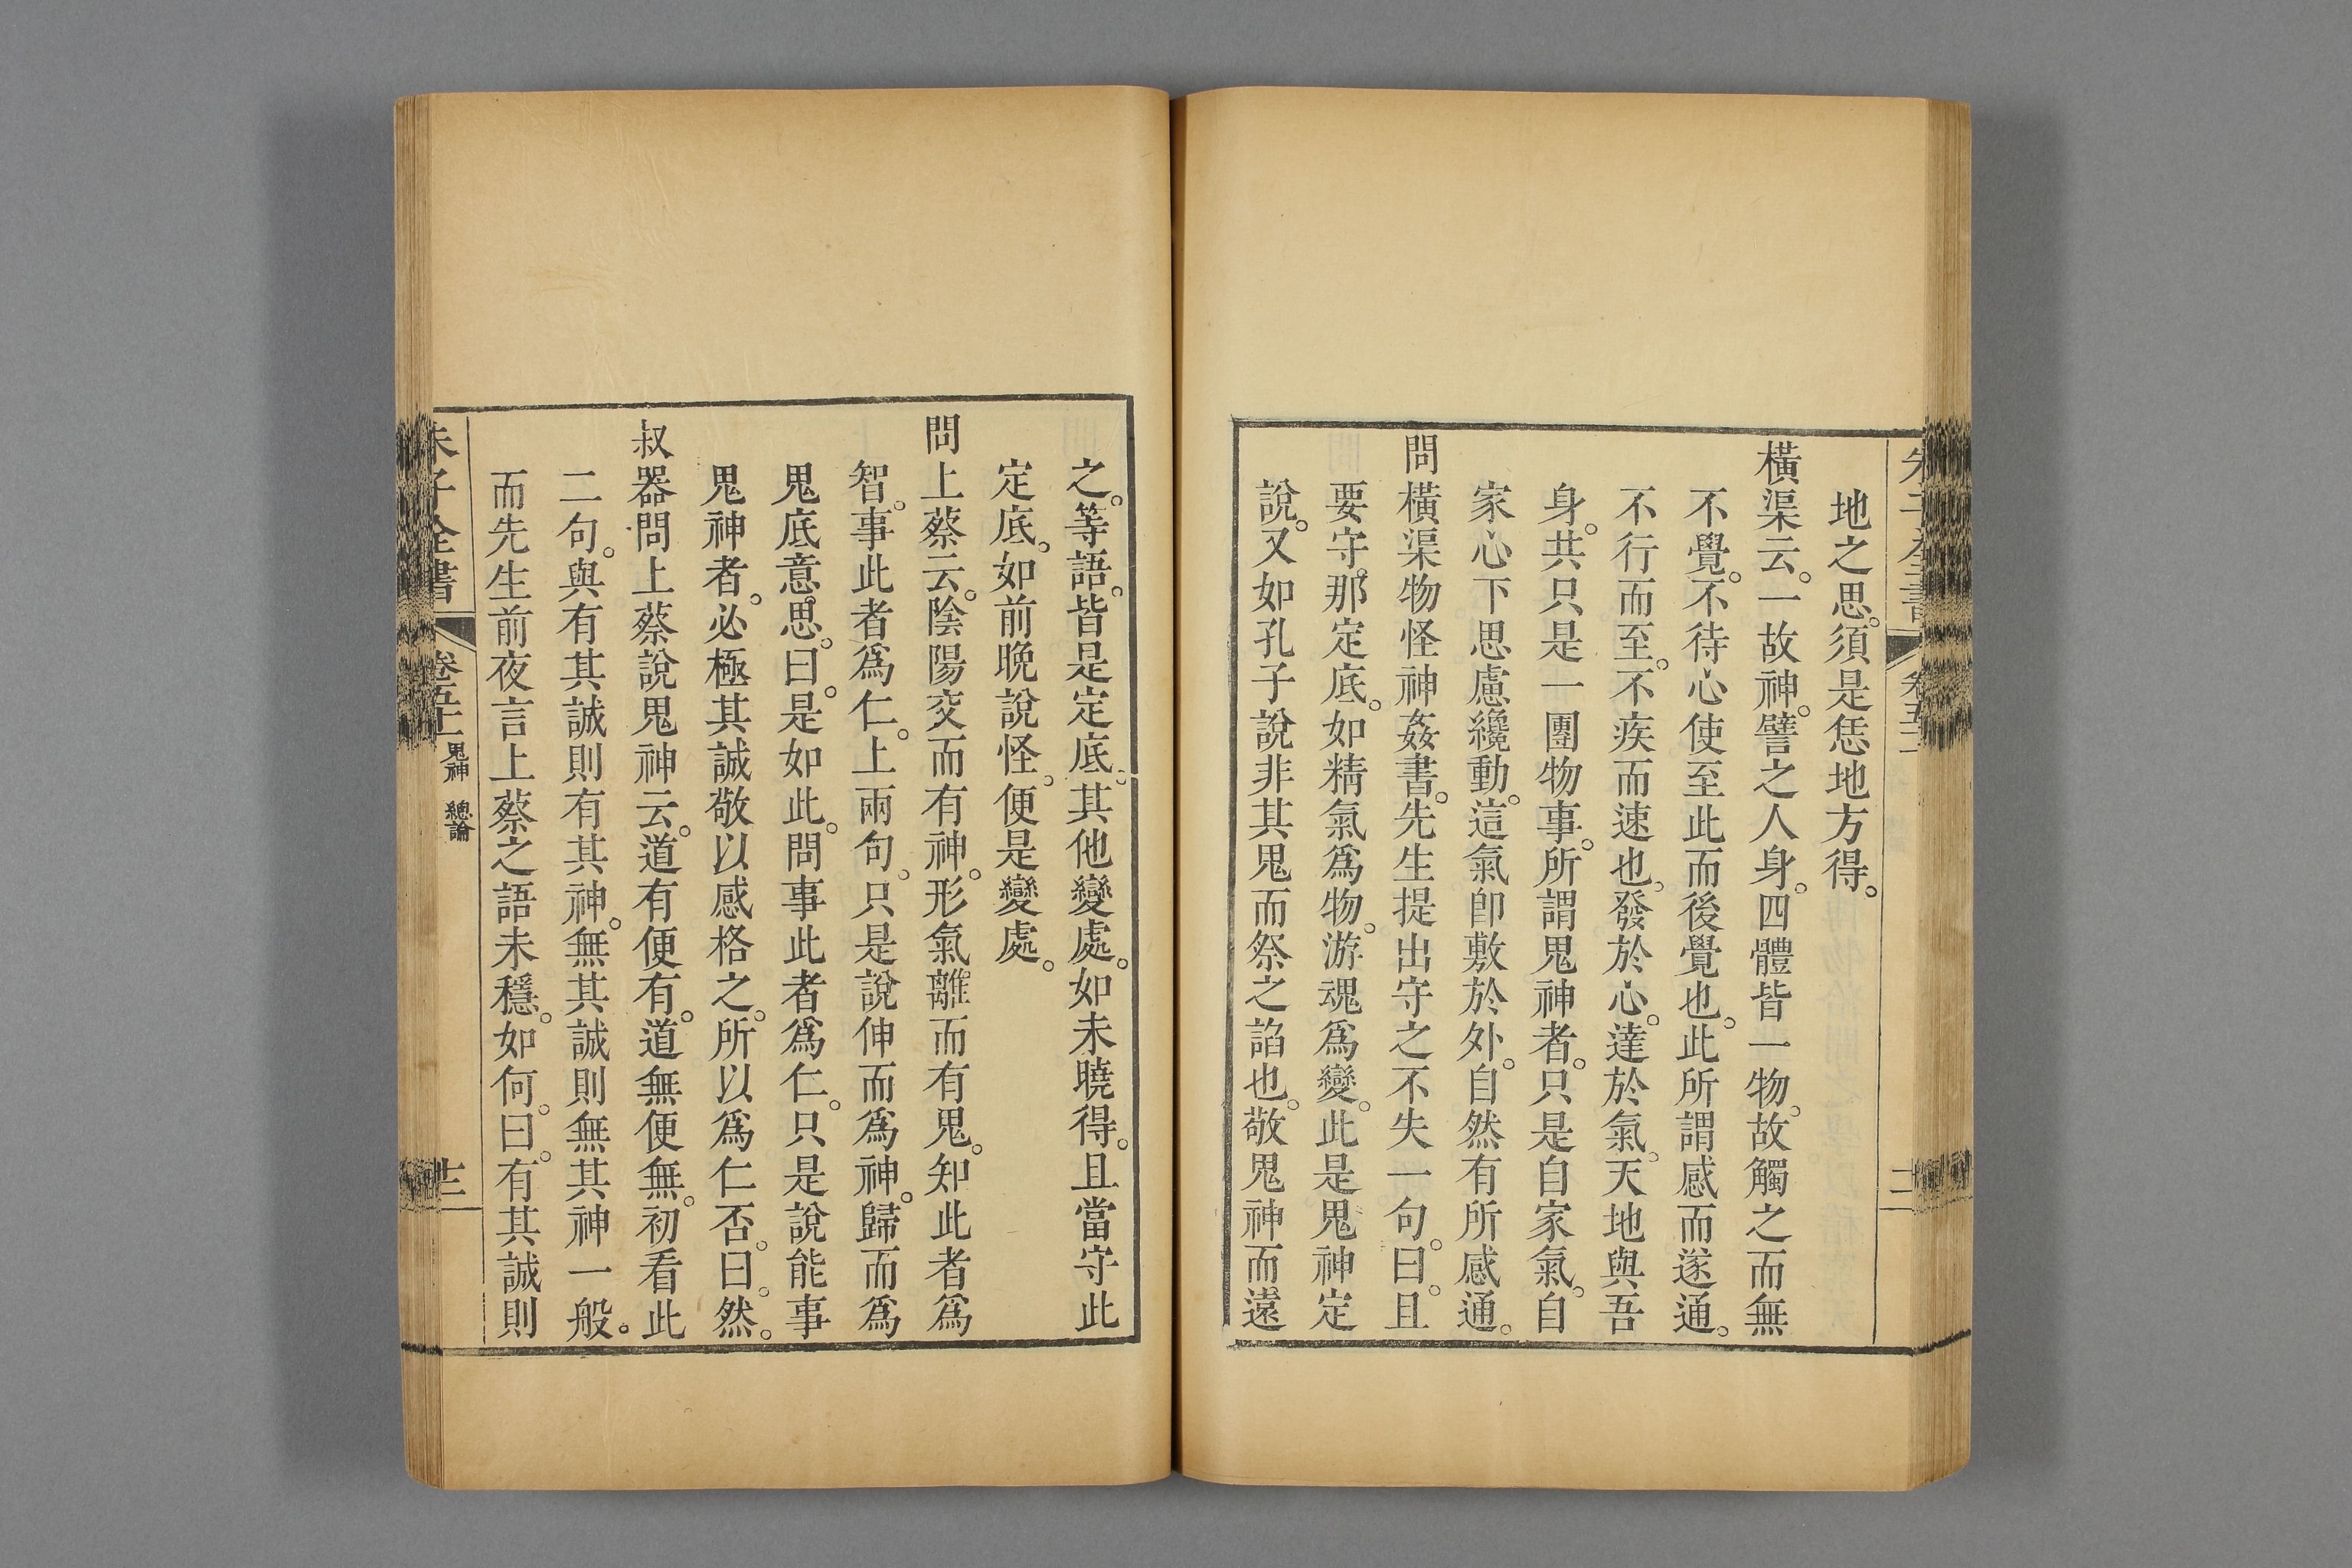 地之思。須是恁地方得。
橫渠云。一故神。譬之人身。四體皆一物。故觸之而無
不覺。不待心使至此而後覺也。此所謂感而遂通。
不行而至。不疾而速也。發於心。達於氣。天地與吾
身。共只是一團物事。所謂鬼神者。只是自家氣。自
家心下思慮纔動。這氣卽敷於外。自然有所感通。
問橫渠物怪神姦書。先生提出守之不失一句。曰。且
要守。那定底。如精氣爲物。游魂爲變。此是鬼神定
說。又如孔子說非其鬼而祭之諂也。敬鬼神而遠
之。等語。皆是定底。其他變處。如未曉得。且當守此
定底。如前晚說怪。便是變處。
問上蔡云。陰陽交而有神。形氣離而有鬼。知此者爲
智。事此者爲仁。上兩句。只是說伸而爲神。歸而爲
鬼底意思。曰。是如此。問事此者爲仁。只是說能事
鬼神者。必極其誠敬以感格之。所以爲仁否。曰。然。
叔器問上蔡說鬼神云。道有便有。道無便無。初看此
二句。與有其誠則有其神。無其誠則無其神一般。
而先生前夜言上蔡之語未穩。如何。曰。有其誠則
朱子全書
卷五十一
鬼神 總論